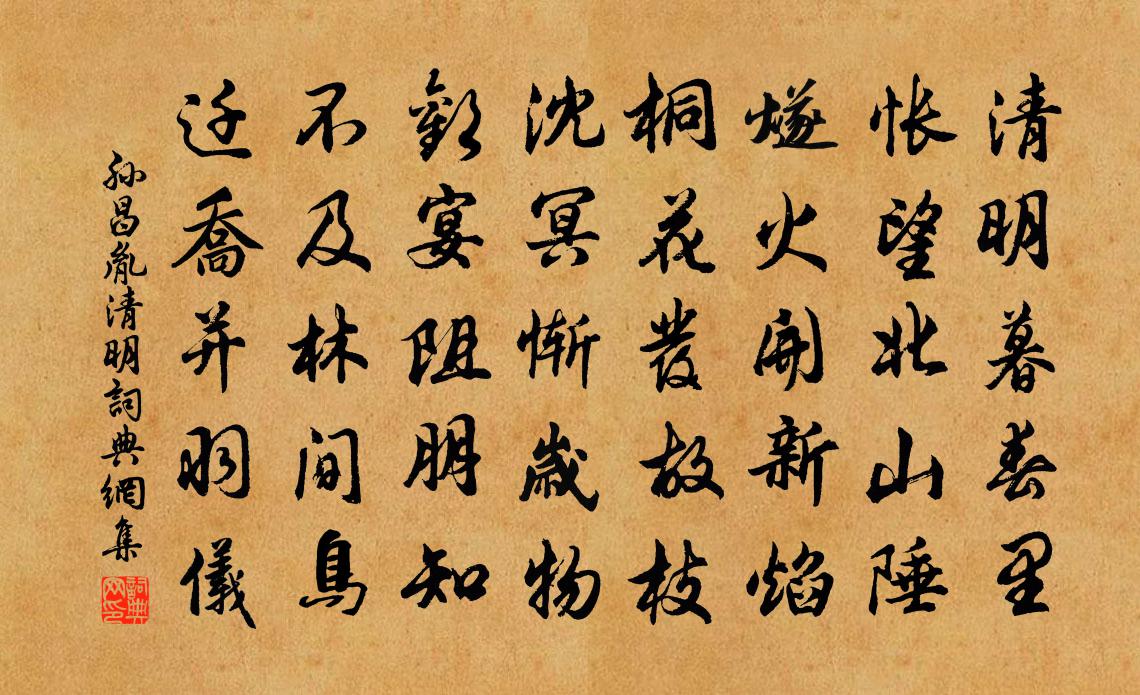 清明暮春里
悵望北山陲
燧火開新焰
桐花發故枝
沈冥慚歲物
歡宴阻朋知
不及林間鳥
迁喬并羽儀
孫昌胤清明詞典網集
詞典网印